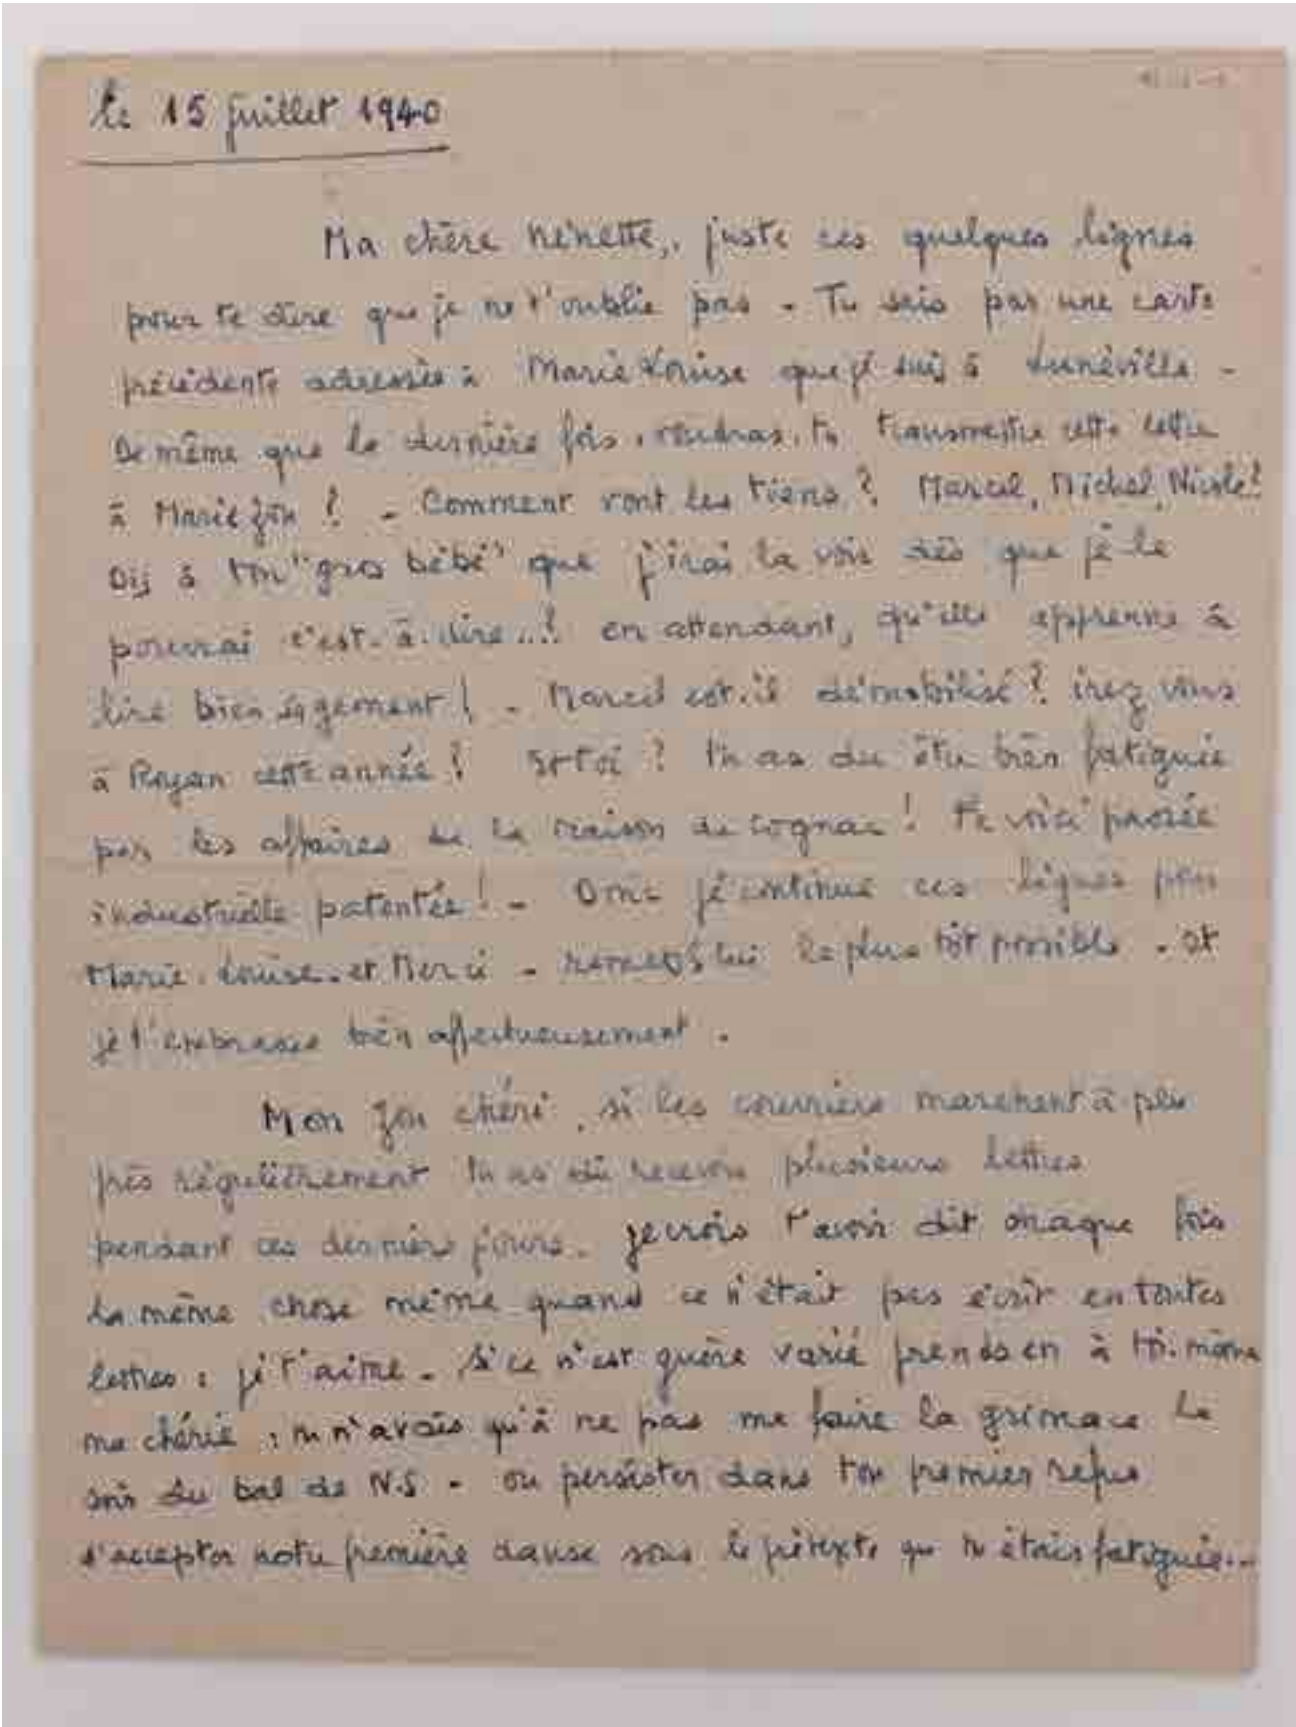 le 15 juillet 1940
Ma chère Nénette, juste ces quelques lignes
pour te dire que je ne t'oublie pas - Tu sais par une carte
précédente adressée à Marie Louise que je suis à Lunéville -
De même que la dernière fois, voudras-tu transmettre cette lettre
à Marie Jou ? - Comment vont les tiens ? Marcel, Michel, Nicole ?
Dis à ton "gros bébé" que j'irai la voir dès que je le
pourrai c'est-à-dire...? en attendant, qu'elle apprenne à
lire bien sagement ! - Marcel est-il démobilisé ? irez vous
à Royan cette année ? et toi ? tu as du être bien fatiguée
par les affaires de la maison de Cognac ! te voici passée
industrielle patentée ! - Donc je continue ces lignes pour
Marie-Louise - et Merci - remets lui le plus tôt possible - et
je t'embrasse bien affectueusement .
Mon Jou chéri, si les courriers marchent à peu
près régulièrement tu as dû recevoir plusieurs lettres
pendant ces derniers jours. je crois t'avoir dit chaque fois
la même chose même quand ce n'était pas écrit en toutes
lettres : je t'aime - Si ce n'est guère varié prends en à toi-même
ma chérie : tu n'avais qu'à ne pas me faire la grimace le
soir du bal de N.S - ou persister dans ton premier refus
d'accepter notre première danse sous le prétexte que tu étais fatiguée...